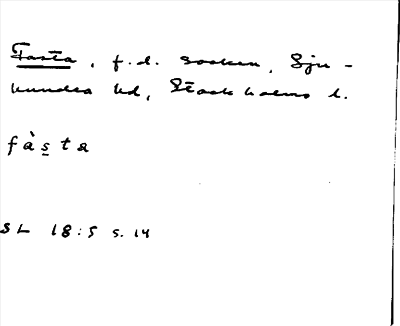 Fasta, f.d. socken, Sju-
hundra hd, Stockholms l.
fàs̲ta
SL 18:5 s. 14